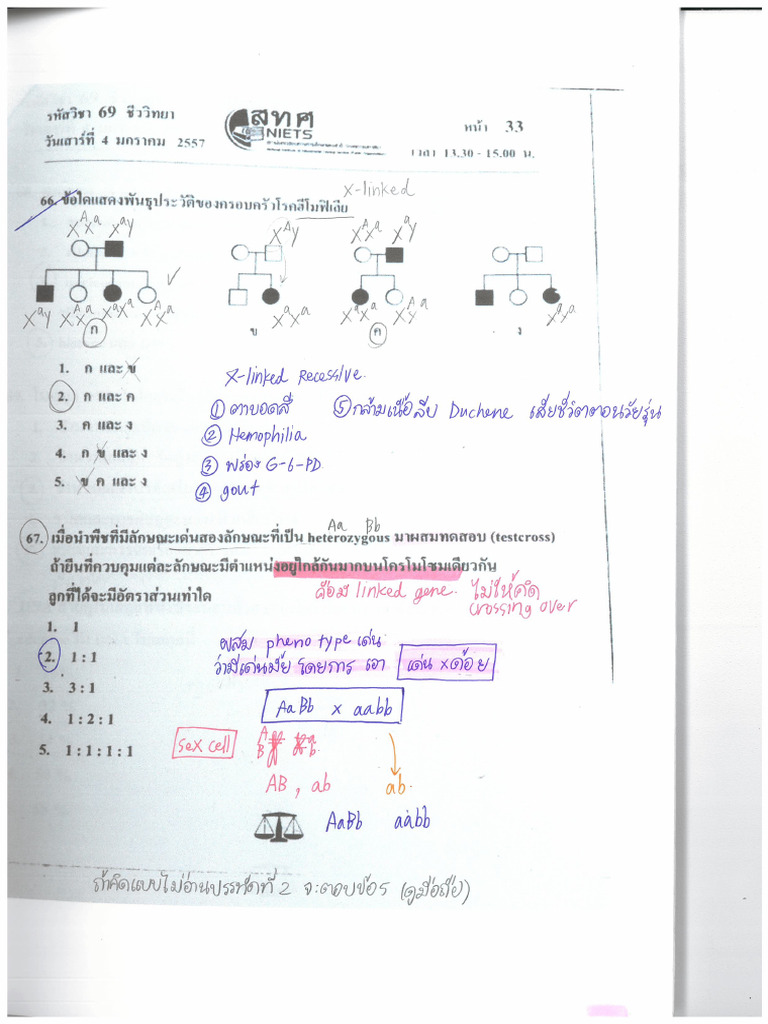 รหัสวิชา 69 ชีววิทยา
สทศ
NIETS
หน้า 33
วันเสาร์ที่ 4 มกราคม 2557
เวลา 13.30 - 15.00 น.
x-linked
66. ข้อใดแสดงพันธุประวัติของครอบครัวโรคฮีโมฟีเลีย
X^A X^a X^a y
X^A y
X^A X^a X^a y
X^a y X^A X^a X^a X^a X^A X^a
X^a X^a
X^a X^a
X^a X^a
ก ข ค ง
1. ก และ ข
2. ก และ ค
3. ค และ ง
4. ก ข และ ง
5. ข ค และ ง
X-linked Recessive.
① ตาบอดสี
⑤ กล้ามเนื้อลีบ Duchene เสียชีวิตตอนวัยรุ่น
② Hemophilia
③ พร่อง G-6-PD.
④ gout
Aa Bb
67. เมื่อนำพืชที่มีลักษณะเด่นสองลักษณะที่เป็น heterozygous มาผสมทดสอบ (testcross)
ถ้ายีนที่ควบคุมแต่ละลักษณะมีตำแหน่งอยู่ใกล้กันมากบนโครโมโซมเดียวกัน
ลูกที่ได้จะมีอัตราส่วนเท่าใด
คือมี linked gene. ไม่ให้คิด
crossing over
1. 1
2. 1 : 1
3. 3 : 1
4. 1 : 2 : 1
5. 1 : 1 : 1 : 1
ผสม phenotype เด่น
ว่ามีเด่นมั้ย โดยการ เอา เด่น x ด้อย
AaBb x aabb
sex cell
A a
B b
AB , ab
ab.
AaBb aabb
ถ้าคิดแบบไม่อ่านบรรทัดที่ 2 จะตอบข้อ 5 (ดูมือถือ)